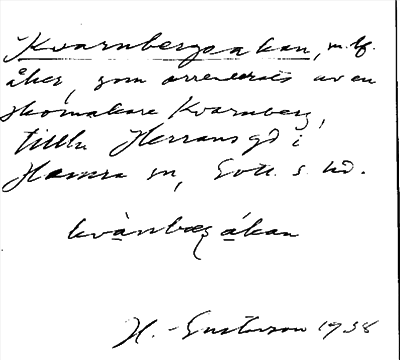 Kvarnbergsakan, m. lf.
åker, som arrenderats av en
skomakare Kvarnberg,
tillh. Herrans gd i
Hamra sn, Gotl. s. hd.
kvànbæȥ åkan
H. Gustavson 1938